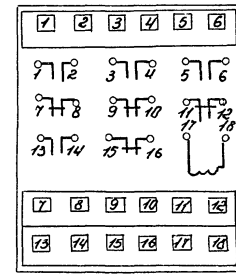 1 2 3 4 5 6
1 2 3 4 5 6
7 8 9 10 11 12
13 14 15 16 17 18
7 8 9 10 11 12
13 14 15 16 17 18